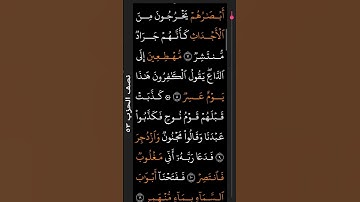 أَبْصَٰرُهُمْ يَخْرُجُونَ مِنَ
ٱلْأَجْدَاثِ كَأَنَّهُمْ جَرَادٌ
مُّنتَشِرٌ ۝٧ مُّهْطِعِينَ إِلَى
ٱلدَّاعِ ۖ يَقُولُ ٱلْكَٰفِرُونَ هَٰذَا
يَوْمٌ عَسِرٌ ۝٨ ۞ كَذَّبَتْ
قَبْلَهُمْ قَوْمُ نُوحٍ فَكَذَّبُوا۟
عَبْدَنَا وَقَالُوا۟ مَجْنُونٌ وَٱزْدُجِرَ
۝٩ فَدَعَا رَبَّهُۥٓ أَنِّى مَغْلُوبٌ
فَٱنتَصِرْ ۝١٠ فَفَتَحْنَآ أَبْوَٰبَ
ٱلسَّمَآءِ بِمَآءٍ مُّنْهَمِرٍ ۝١١
نصف الحزب ٥٣